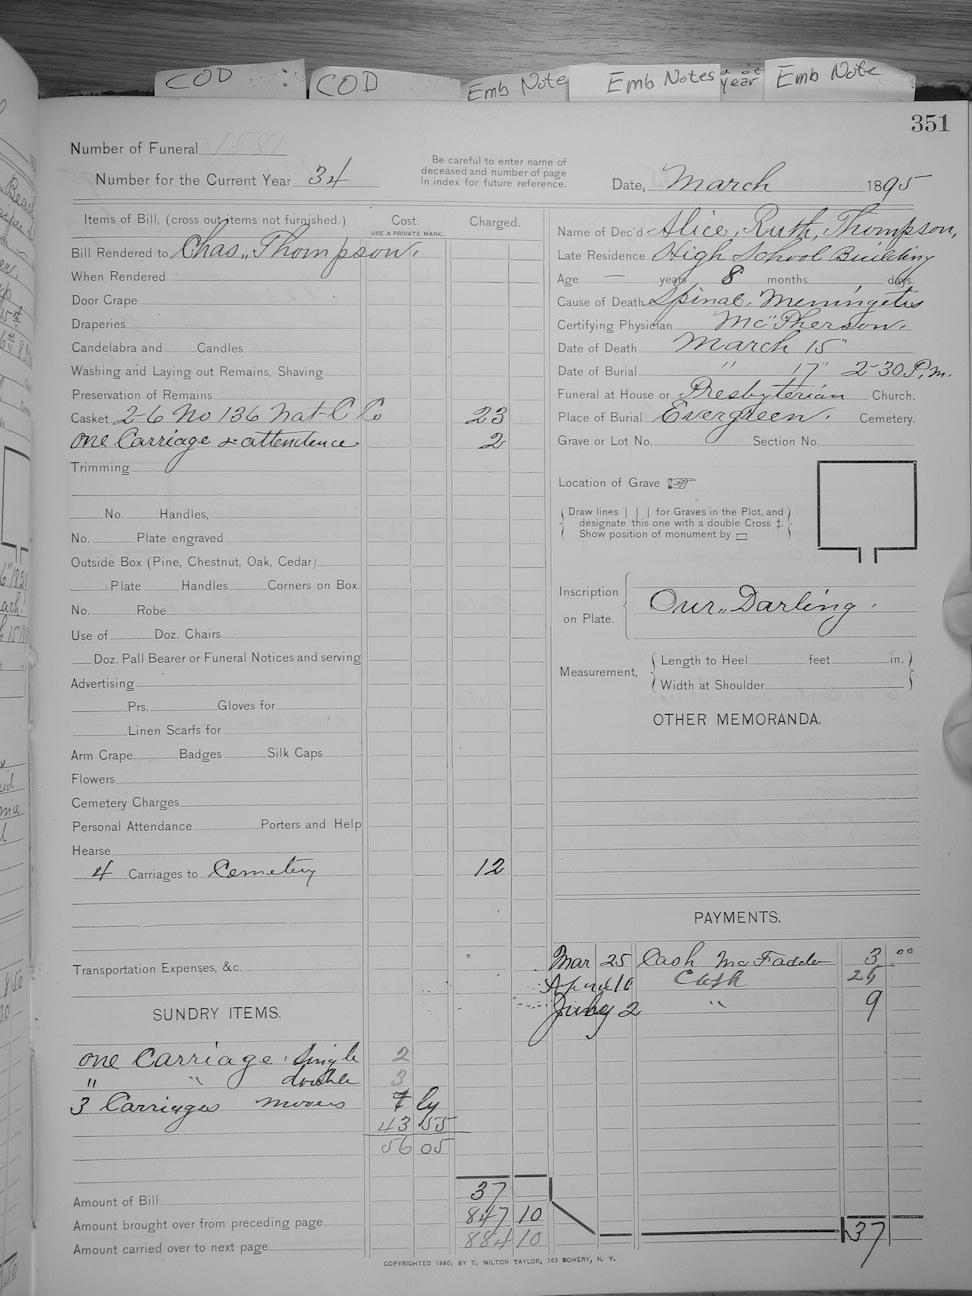 COD
COD
Emb Note
Emb Notes
year
Emb Note
351
Number of Funeral 1581
Number for the Current Year 34
Be careful to enter name of
deceased and number of page
in index for future reference.
Date, March 1895
Items of Bill, (cross out items not furnished.) Cost. Charged.
USE A PRIVATE MARK.
Bill Rendered to Chas. Thompson.
When Rendered
Door Crape
Draperies
Candelabra and Candles
Washing and Laying out Remains, Shaving
Preservation of Remains
Casket 2-6 No 136 Nat C Co 23
one Carriage & attendence 2
Trimming
No. Handles,
No. Plate engraved
Outside Box (Pine, Chestnut, Oak, Cedar)
Plate Handles Corners on Box.
No. Robe
Use of Doz. Chairs
Doz. Pall Bearer or Funeral Notices and serving
Advertising
Prs. Gloves for
Linen Scarfs for
Arm Crape Badges Silk Caps
Flowers
Cemetery Charges
Personal Attendance Porters and Help
Hearse
4 Carriages to Cemetery 12
Transportation Expenses, &c.
SUNDRY ITEMS.
one Carriage single 2
" " double 3
3 Carriages
43 55
56 05
Amount of Bill 37
Amount brought over from preceding page 847 10
Amount carried over to next page 884 10
Name of Dec'd Alice Ruth Thompson,
Late Residence High School Building
Age — years 8 months days.
Cause of Death Spinal Meningetis
Certifying Physician McPherson.
Date of Death March 15"
Date of Burial " 17" 2-30 P.m.
Funeral at House or Presbyterian Church.
Place of Burial Evergreen. Cemetery.
Grave or Lot No. Section No.
Location of Grave
Draw lines | | | for Graves in the Plot, and
designate this one with a double Cross ‡.
Show position of monument by
Inscription
on Plate.
Our Darling.
Measurement,
Length to Heel feet in.
Width at Shoulder
OTHER MEMORANDA.
PAYMENTS.
Mar 25 Cash McFadden 3 00
April 10 Cash 25
July 2 " 9
37
COPYRIGHTED 1890, BY T. MILTON TAYLOR, 163 BOWERY, N. Y.